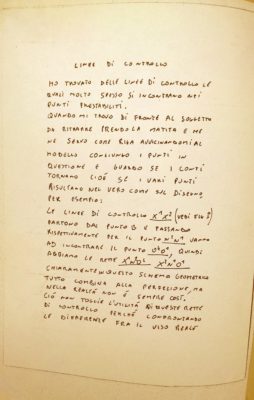 LINEE DI CONTROLLO
HO TROVATO DELLE LINEE DI CONTROLLO LE
QUALI MOLTO SPESSO SI INCONTRANO NEI
PUNTI PRESTABILITI.
QUANDO MI TROVO DI FRONTE AL SOGGETTO
DA RITRARRE PRENDO LA MATITA E ME
NE SERVO COME RIGA AVVICINANDOMI AL
MODELLO CONGIUNGO I PUNTI IN
QUESTIONE E GUARDO SE I CONTI
TORNANO CIOÉ SE I VARI PUNTI
RISULTANO NEL VERO COME SUL DISEGNO,
PER ESEMPIO:
LE LINEE DI CONTROLLO (VEDI FIG
PARTONO DAL PUNTO B E PASSANDO
RISPETTIVAMENTE PER IL PUNTO VANNO
AD INCONTRARE IL PUNTO QUINDI
ABBIAMO LE RETTE
CHIARAMENTE IN QUESTO SCHEMA GEOMETRICO
TUTTO COMBINA ALLA PERFEZIONE, MA
NELLA REALTÀ NON É SEMPRE COSÍ.
CIÓ NON TOGLIE L'UTILITÀ DI QUESTE RETTE
DI CONTROLLO PERCHÉ CONFRONTANDO
LE DIFFERENZE FRA IL VISO REALE